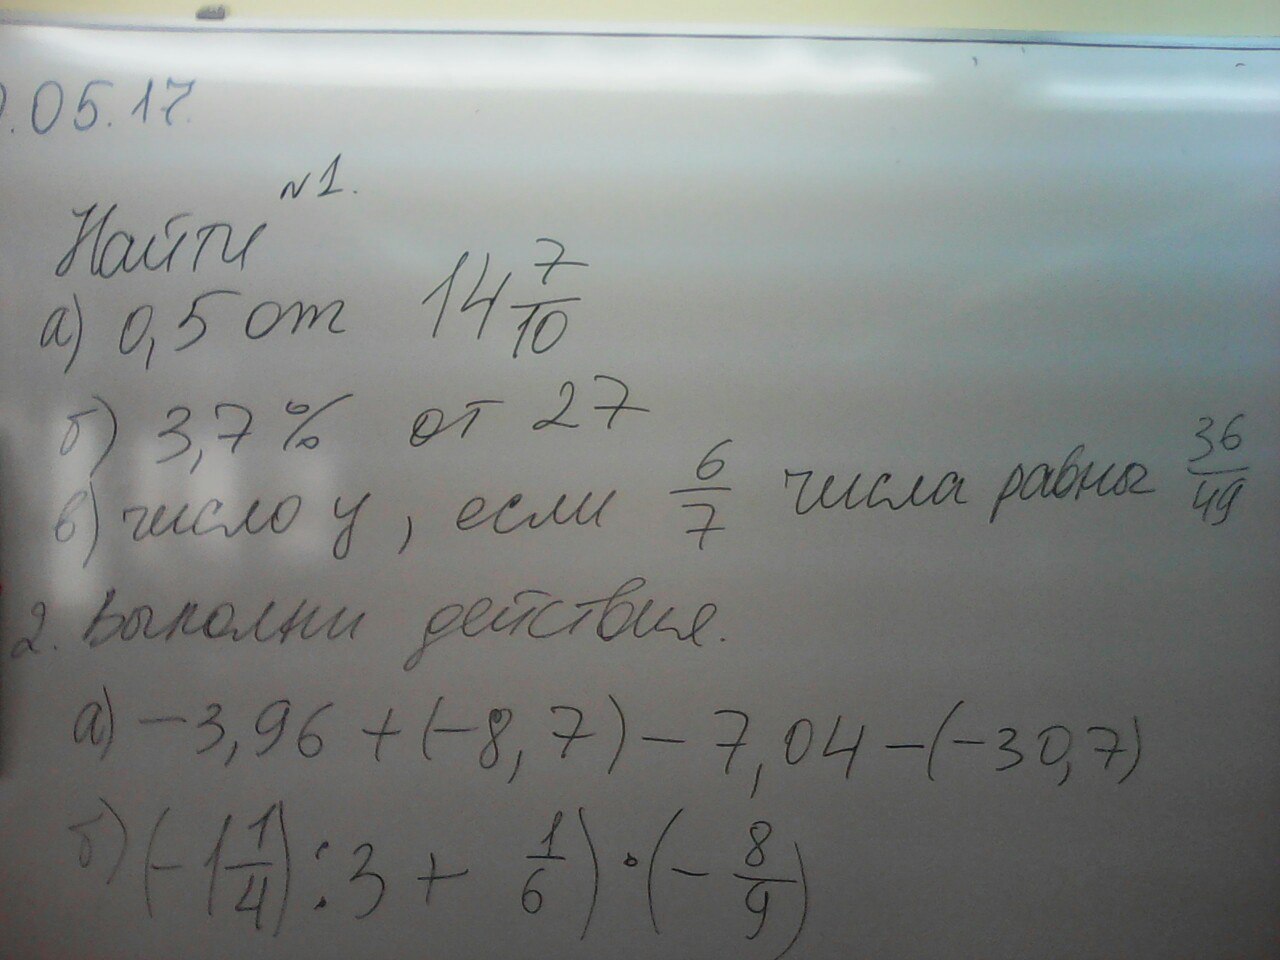 .05.17.
№1.
Найти
а) 0,5 от 14 7/10
б) 3,7% от 27
в) число y, если 6/7 числа равны 36/49
2. Выполни действия.
а) -3,96 + (-8,7) - 7,04 - (-30,7)
б) (-1 1/4) : 3 + 1/6) · (- 8/9)